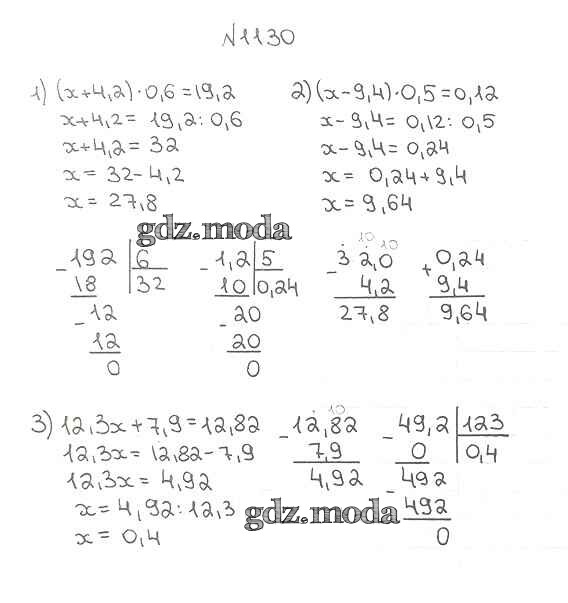 N1130
1) (x+4,2)·0,6=19,2
x+4,2= 19,2:0,6
x+4,2=32
x= 32-4,2
x= 27,8
2)(x-9,4)·0,5=0,12
x-9,4= 0,12: 0,5
x-9,4= 0,24
x= 0,24+9,4
x= 9,64
gdz.moda
-192 6
18 32
-12
12
0
-1,2 5
10 0,24
-20
20
0
10 10
-32,0
4,2
27,8
+0,24
9,4
9,64
3) 12,3x+7,9=12,82
12,3x= 12,82-7,9
12,3x= 4,92
x=4,92:12,3
x= 0,4
10
-12,82
7,9
4,92
-49,2 123
0 0,4
-492
492
0
gdz.moda